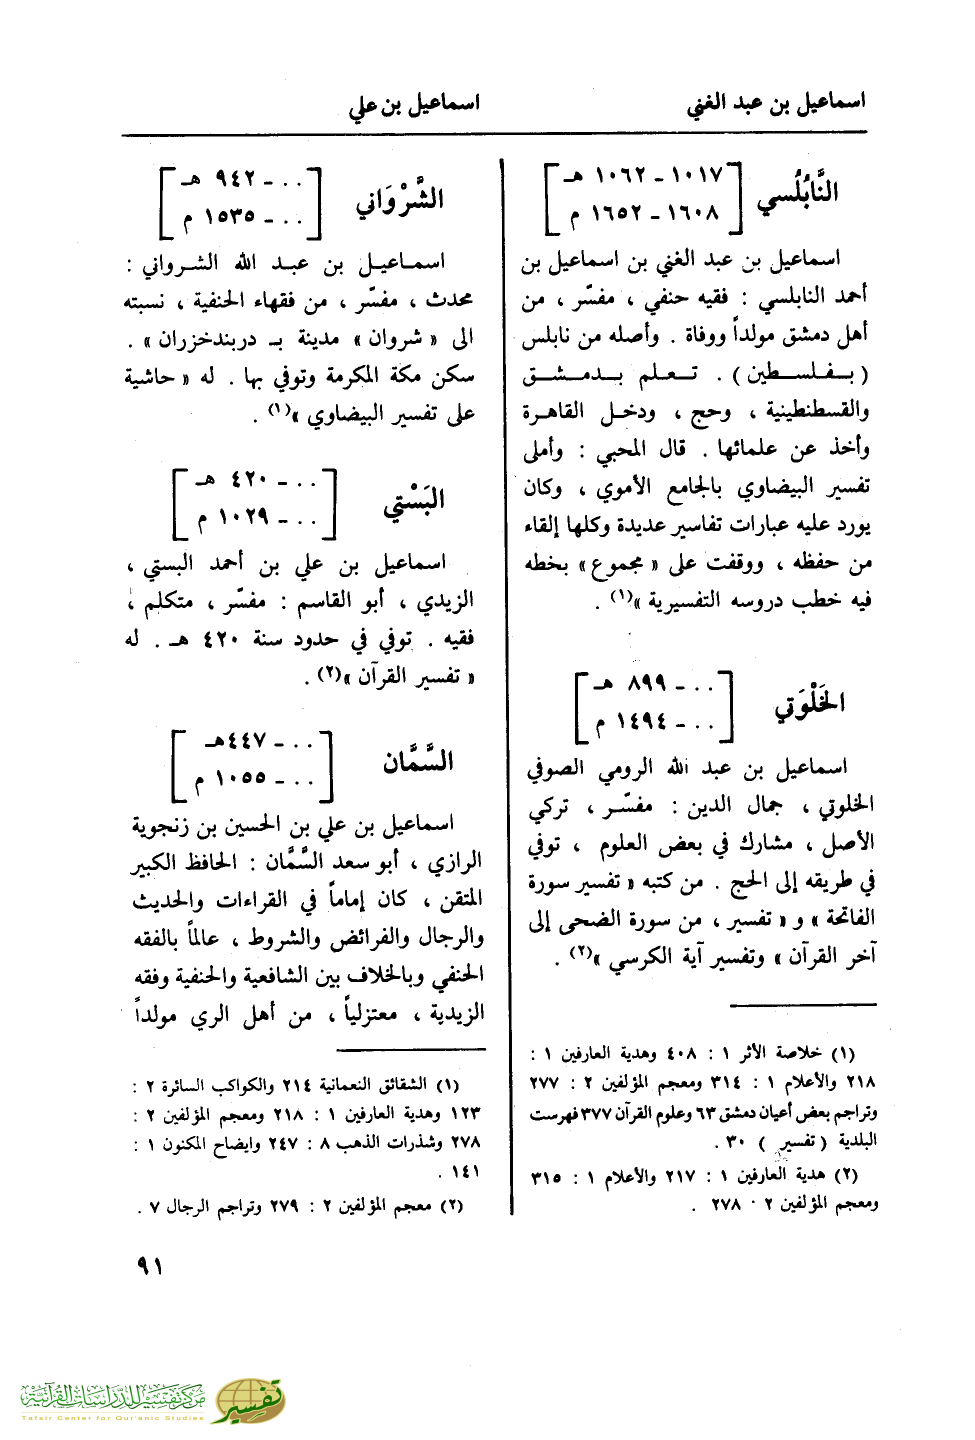 اسماعيل بن عبد الغني
اسماعيل بن علي
النَّابُلُسي
[ ١٠١٧ - ١٠٦٢ هـ
١٦٠٨ - ١٦٥٢ م ]
اسماعيل بن عبد الغني بن اسماعيل بن
أحمد النابلسي : فقيه حنفي ، مفسّر ، من
أهل دمشق مولداً ووفاة . وأصله من نابلس
( بفلسطين ) . تعلم بدمشق
والقسطنطينية ، وحج ، ودخل القاهرة
وأخذ عن علمائها . قال المحبي : وأملى
تفسير البيضاوي بالجامع الأموي ، وكان
يورد عليه عبارات تفاسير عديدة وكلها إلقاء
من حفظه ، ووقفت على « مجموع » بخطه
فيه خطب دروسه التفسيرية »(١) .
الخَلْوَتي
[ .. - ٨٩٩ هـ
.. - ١٤٩٤ م ]
اسماعيل بن عبد الله الرومي الصوفي
الخلوتي ، جمال الدين : مفسّر ، تركي
الأصل ، مشارك في بعض العلوم ، توفي
في طريقه إلى الحج . من كتبه « تفسير سورة
الفاتحة » و « تفسير ، من سورة الضحى إلى
آخر القرآن » وتفسير آية الكرسي »(٢) .
(١) خلاصة الأثر ١ : ٤٠٨ وهدية العارفين ١ :
٢١٨ والأعلام ١ : ٣١٤ ومعجم المؤلفين ٢ : ٢٧٧
وتراجم بعض أعيان دمشق ٦٣ وعلوم القرآن ٣٧٧ فهرست
البلدية ( تفسير ) ٣٠ .
(٢) هدية العارفين ١ : ٢١٧ والأعلام ١ : ٣١٥
ومعجم المؤلفين ٢ : ٢٧٨ .
الشَّرْوَاني
[ ... - ٩٤٢ هـ
... - ١٥٣٥ م ]
اسماعيل بن عبد الله الشرواني :
محدث ، مفسّر ، من فقهاء الحنفية ، نسبته
الى « شروان » مدينة بـ دربندخزران » .
سكن مكة المكرمة وتوفي بها . له « حاشية
على تفسير البيضاوي »(١) .
البَسْتي
[ ... - ٤٢٠ هـ
... - ١٠٢٩ م ]
اسماعيل بن علي بن أحمد البستي ،
الزيدي ، أبو القاسم : مفسّر ، متكلم ،
فقيه . توفي في حدود سنة ٤٢٠ هـ . له
« تفسير القرآن »(٢) .
السَّمَّان
[ ... - ٤٤٧هـ
... - ١٠٥٥ م ]
اسماعيل بن علي بن الحسين بن زنجوية
الرازي ، أبو سعد السَّمَّان : الحافظ الكبير
المتقن ، كان إماماً في القراءات والحديث
والرجال والفرائض والشروط ، عالماً بالفقه
الحنفي وبالخلاف بين الشافعية والحنفية وفقه
الزيدية ، معتزلياً ، من أهل الري مولداً
(١) الشقائق النعمانية ٢١٤ والكواكب السائرة ٢ :
١٢٣ وهدية العارفين ١ : ٢١٨ ومعجم المؤلفين ٢ :
٢٧٨ وشذرات الذهب ٨ : ٢٤٧ وايضاح المكنون ١ :
١٤١ .
(٢) معجم المؤلفين ٢ : ٢٧٩ وتراجم الرجال ٧ .
٩١
مركز تفسير للدراسات القرآنية
Tafsir Center for Qur'anic Studies
تفسير